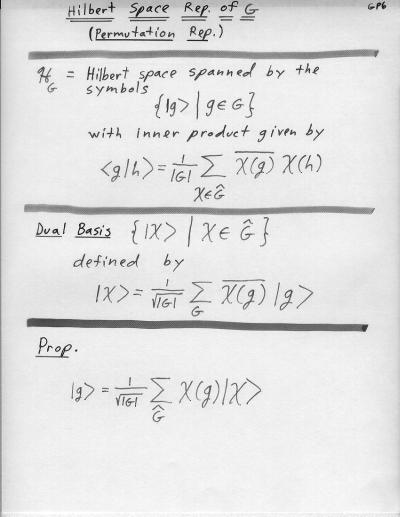 Hilbert Space Rep. of G
GP6
(Permutation Rep.)
ℋ_G = Hilbert space spanned by the
symbols
{|g> | g ∈ G}
with inner product given by
<g|h> = 1/|G| ∑_{χ∈Ĝ} \overline{χ(g)} χ(h)
Dual Basis {|χ> | χ ∈ Ĝ}
defined by
|χ> = 1/√|G| ∑_G \overline{χ(g)} |g>
Prop.
|g> = 1/√|G| ∑_Ĝ χ(g)|χ>